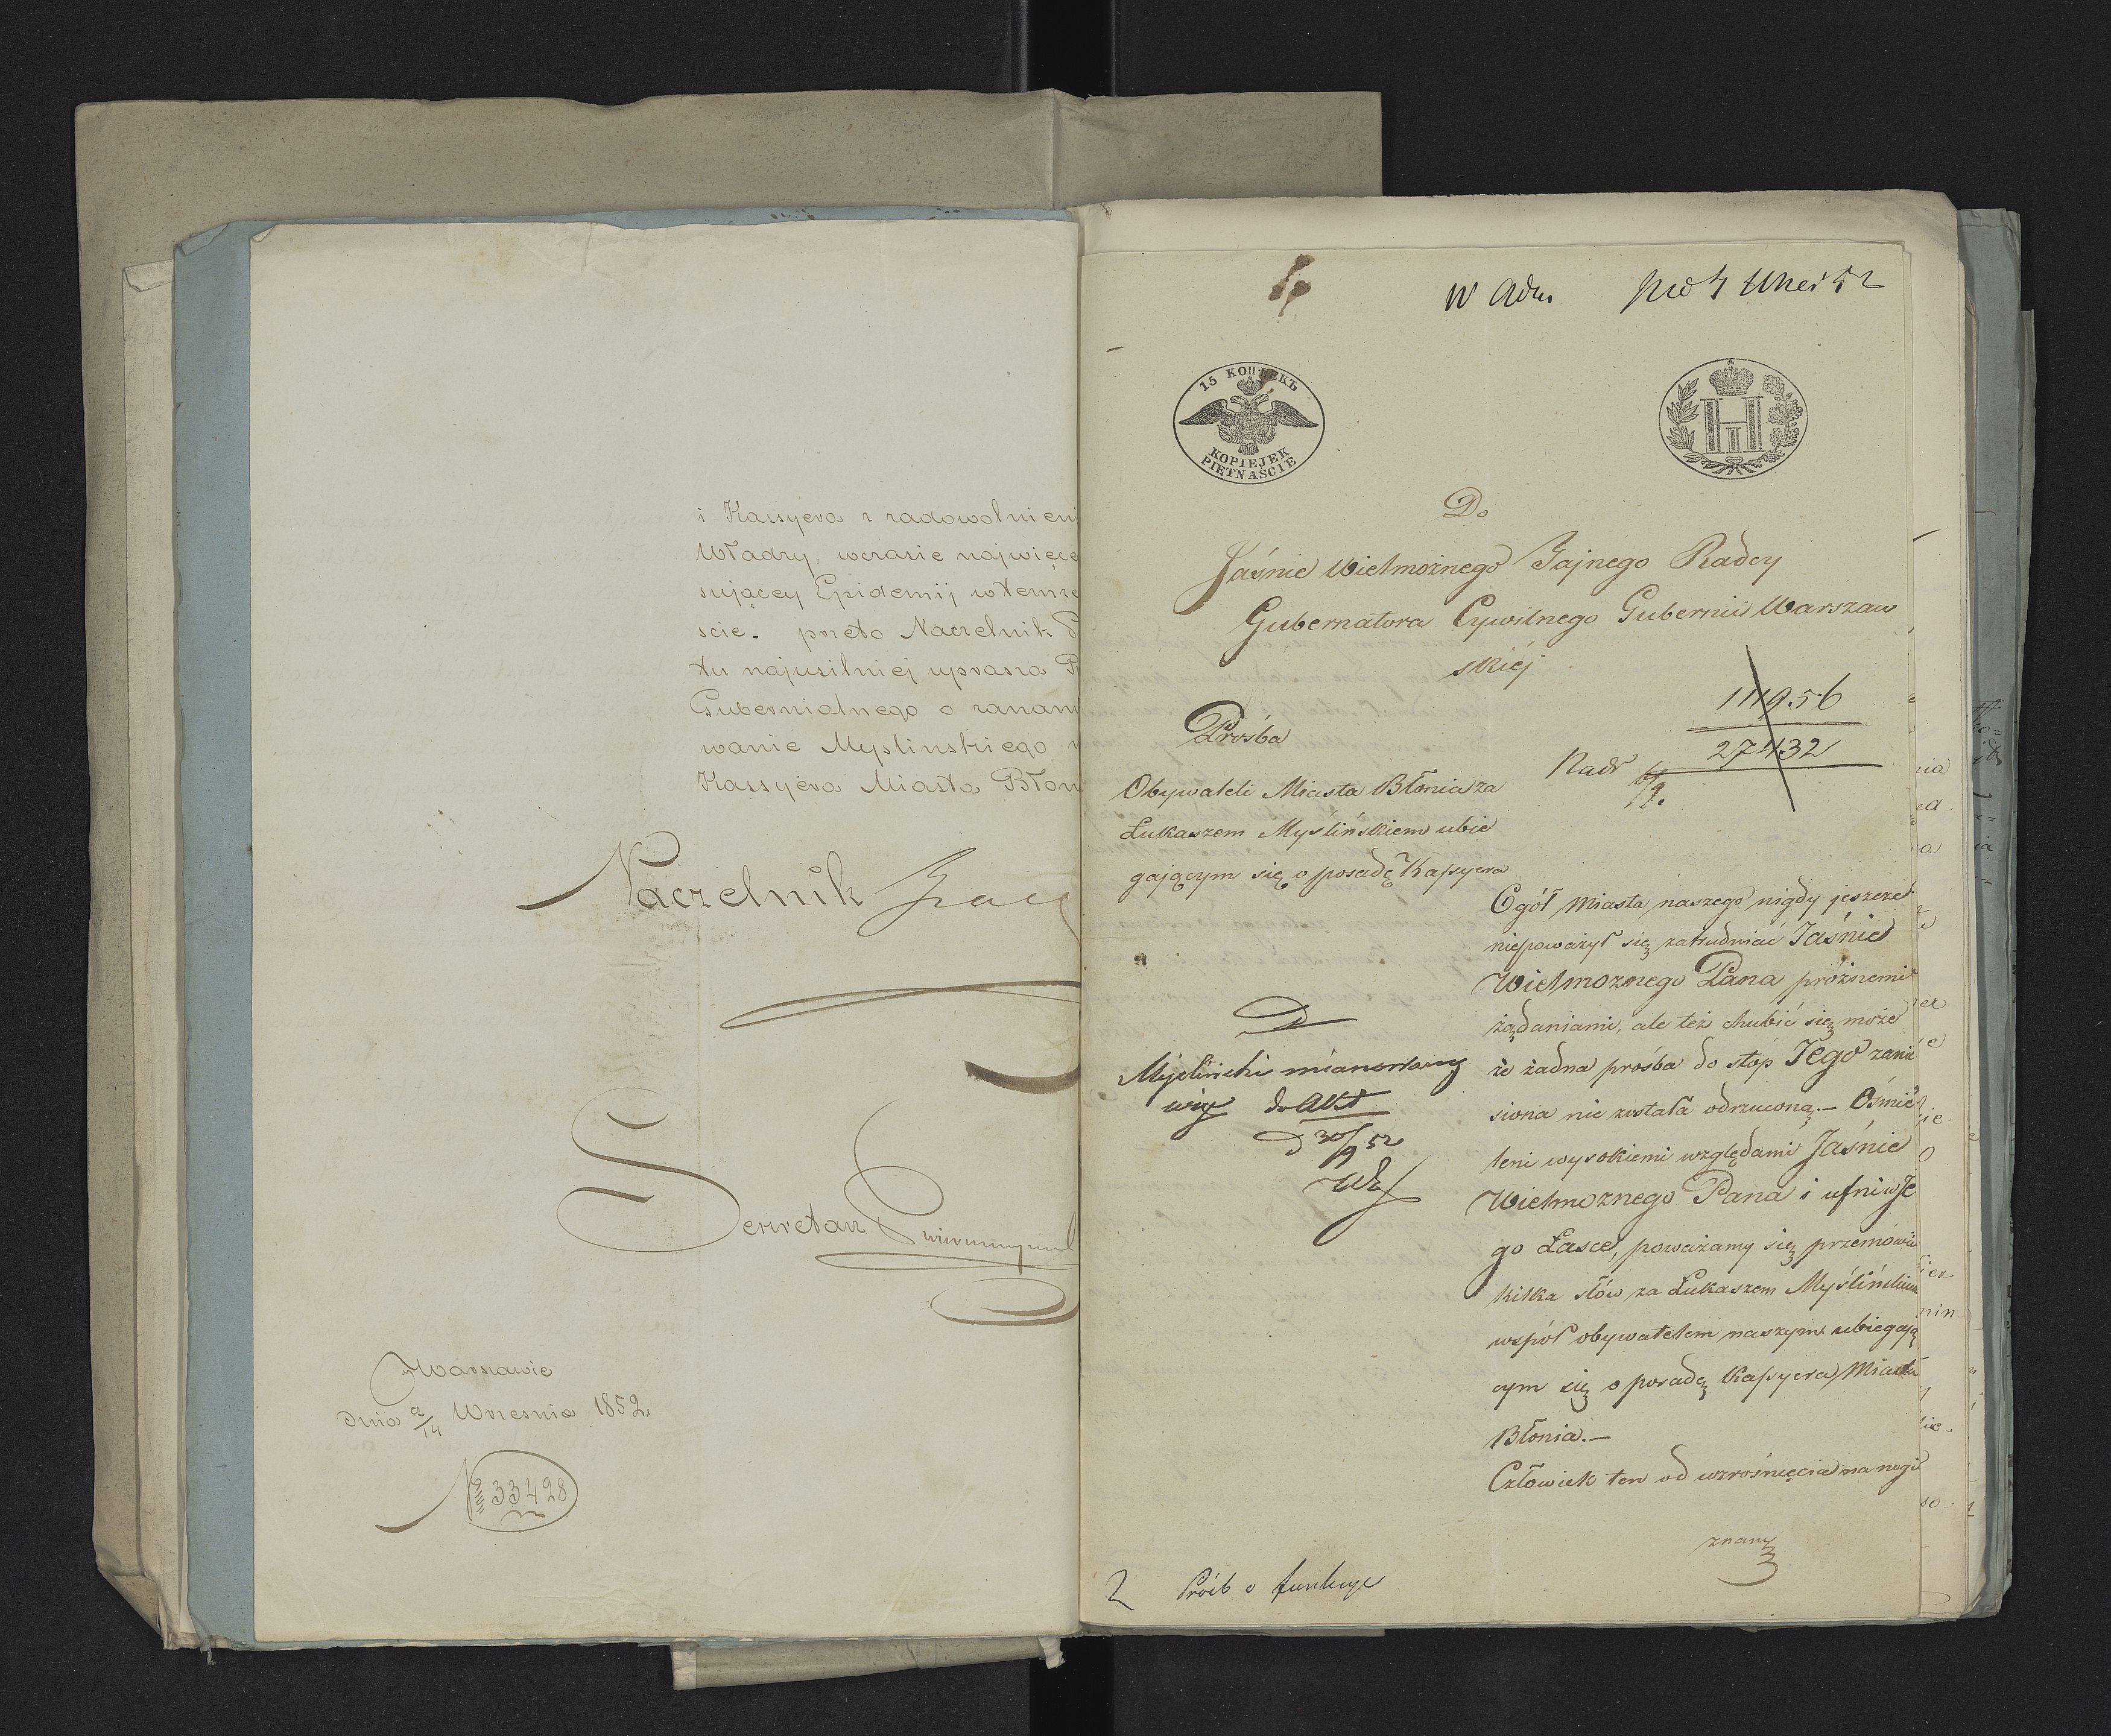 i Kassyera z zadowolnieni
Władzy, wczasie najwięce
sującey Epidemij wtemże
ście. przeto Naczelnik P
tu najusilniej uprasza R
Gubernialnego o zanomi
wanie Myslinskiego n
Kassyéra Miasta Błon
Naczelnik
Sekretarz
Warszawie
dnia 2/14 Wrzesnia 1852.
N 33428
W Adm
15 КОПѢЕКЪ
KOPIEJEK
PIETNAŚCIE
Н
I
Do
Jáśnie Wielmożnego Tajnego Radcy
Gubernatora Cywilnego Gubernii Warszaw
skiéj
111956
27432
Nadr 6/9.
Prośba
Obywateli Miasta Błonia za
Łukaszem Myślińskiem ubie
gającym się o posadę Kassyera
Ogół Miasta naszego nigdy jeszcze
niepoważył się zatrudniać Jaśnie
Wielmoznego Pana próżnemi
żądaniami, ale też chubić się może
że żadna prośba do stóp Jego zanie
siona nie została odrzuconą.— Ośmie
leni wysokiemi względami Jaśnie
Wielmoznego Pana i ufni w Je
go Łasce, poważamy się przemówić
kilka słów za Łukaszem Myślińskiem
wspól obywatelem naszym ubiegają
cym się o posadę Kassyera Miasta
Błonia.—
Człowiek ten od wzrośnięcia na nogi
znany
D
Myslinski mianowany
więc do Akt
D 30/9 52
2 Próśb o funkcye